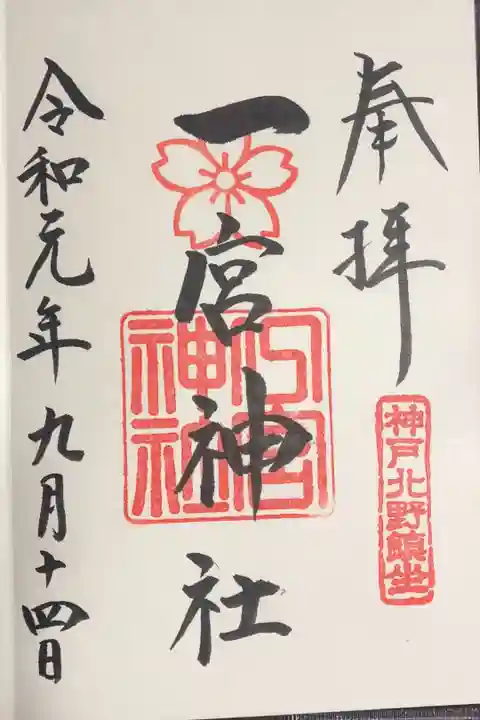 奉拝
神戸北野鎮坐
一宮神社
令和元年九月十四日